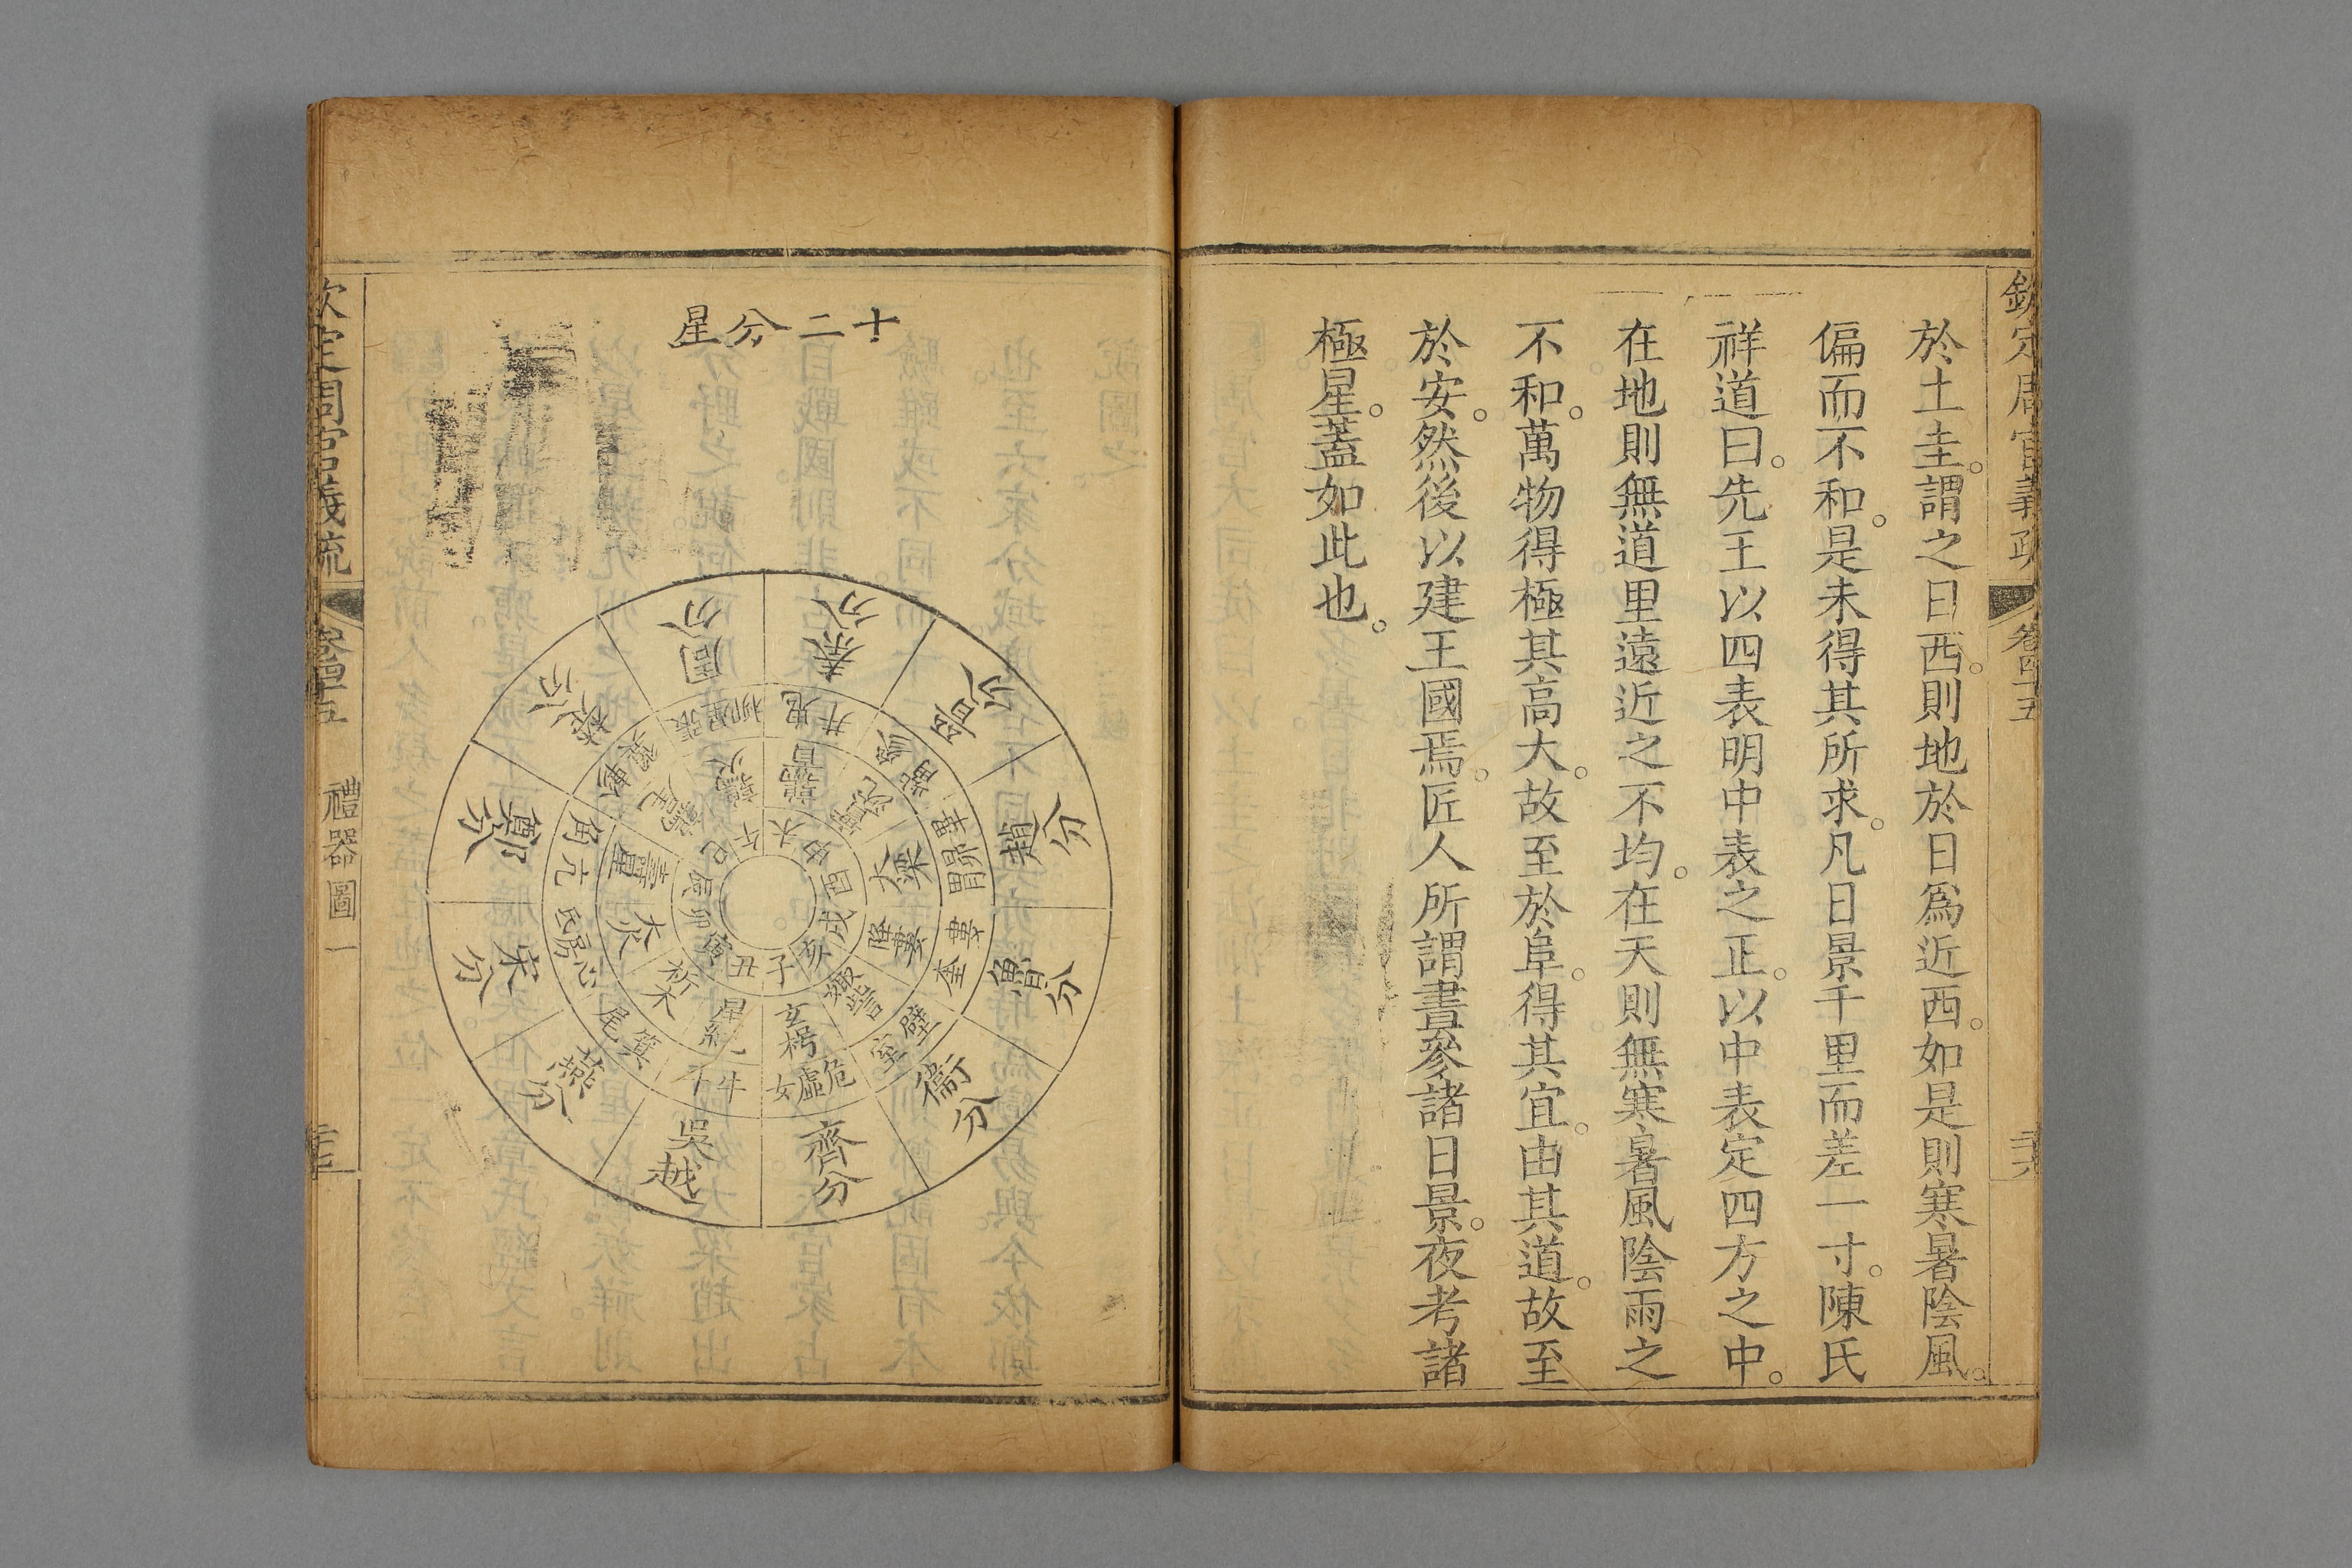 欽定周官義疏
卷四十五
於土圭。謂之日西。則地於日爲近西。如是則寒暑陰風。
偏而不和。是未得其所求。凡日景千里而差一寸。陳氏
祥道曰。先王以四表明中表之正。以中表定四方之中。
在地則無道里遠近之不均。在天則無寒暑風陰雨之
不和。萬物得極其高大。故至於阜。得其宜。由其道。故至
於安。然後以建王國焉。匠人所謂晝參諸日景。夜考諸
極星。蓋如此也。
十二分星
秦分
晉分
趙分
魯分
衞分
齊分
吳越
燕分
宋分
鄭分
楚分
周分
井鬼
觜參
胃昴畢
奎婁
室壁
女虛危
斗牛
尾箕
氐房心
角亢
翼軫
柳星張
鶉首
實沈
大梁
降婁
娵訾
玄枵
星紀
析木
大火
壽星
鶉尾
鶉火
未
申
酉
戌
亥
子
丑
寅
卯
辰
巳
午
欽定周官義疏
卷四十五
禮器圖一